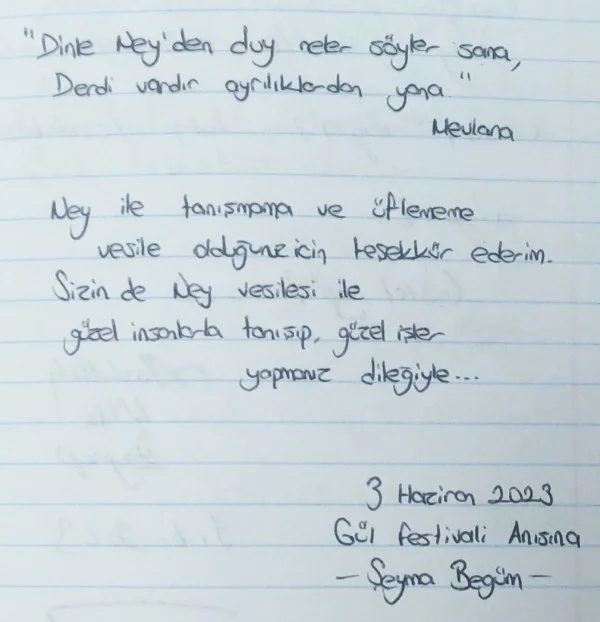 "Dinle Ney'den duy neler söyler sana,
Derdi vardır ayrılıklardan yana"
Mevlana
Ney ile tanışmama ve üflememe
vesile olduğunuz için teşekkür ederim.
Sizin de Ney vesilesi ile
güzel insanlarla tanışıp, güzel işler
yapmanız dileğiyle...
3 Haziran 2023
Gül festivali Anısına
- Şeyma Begüm -